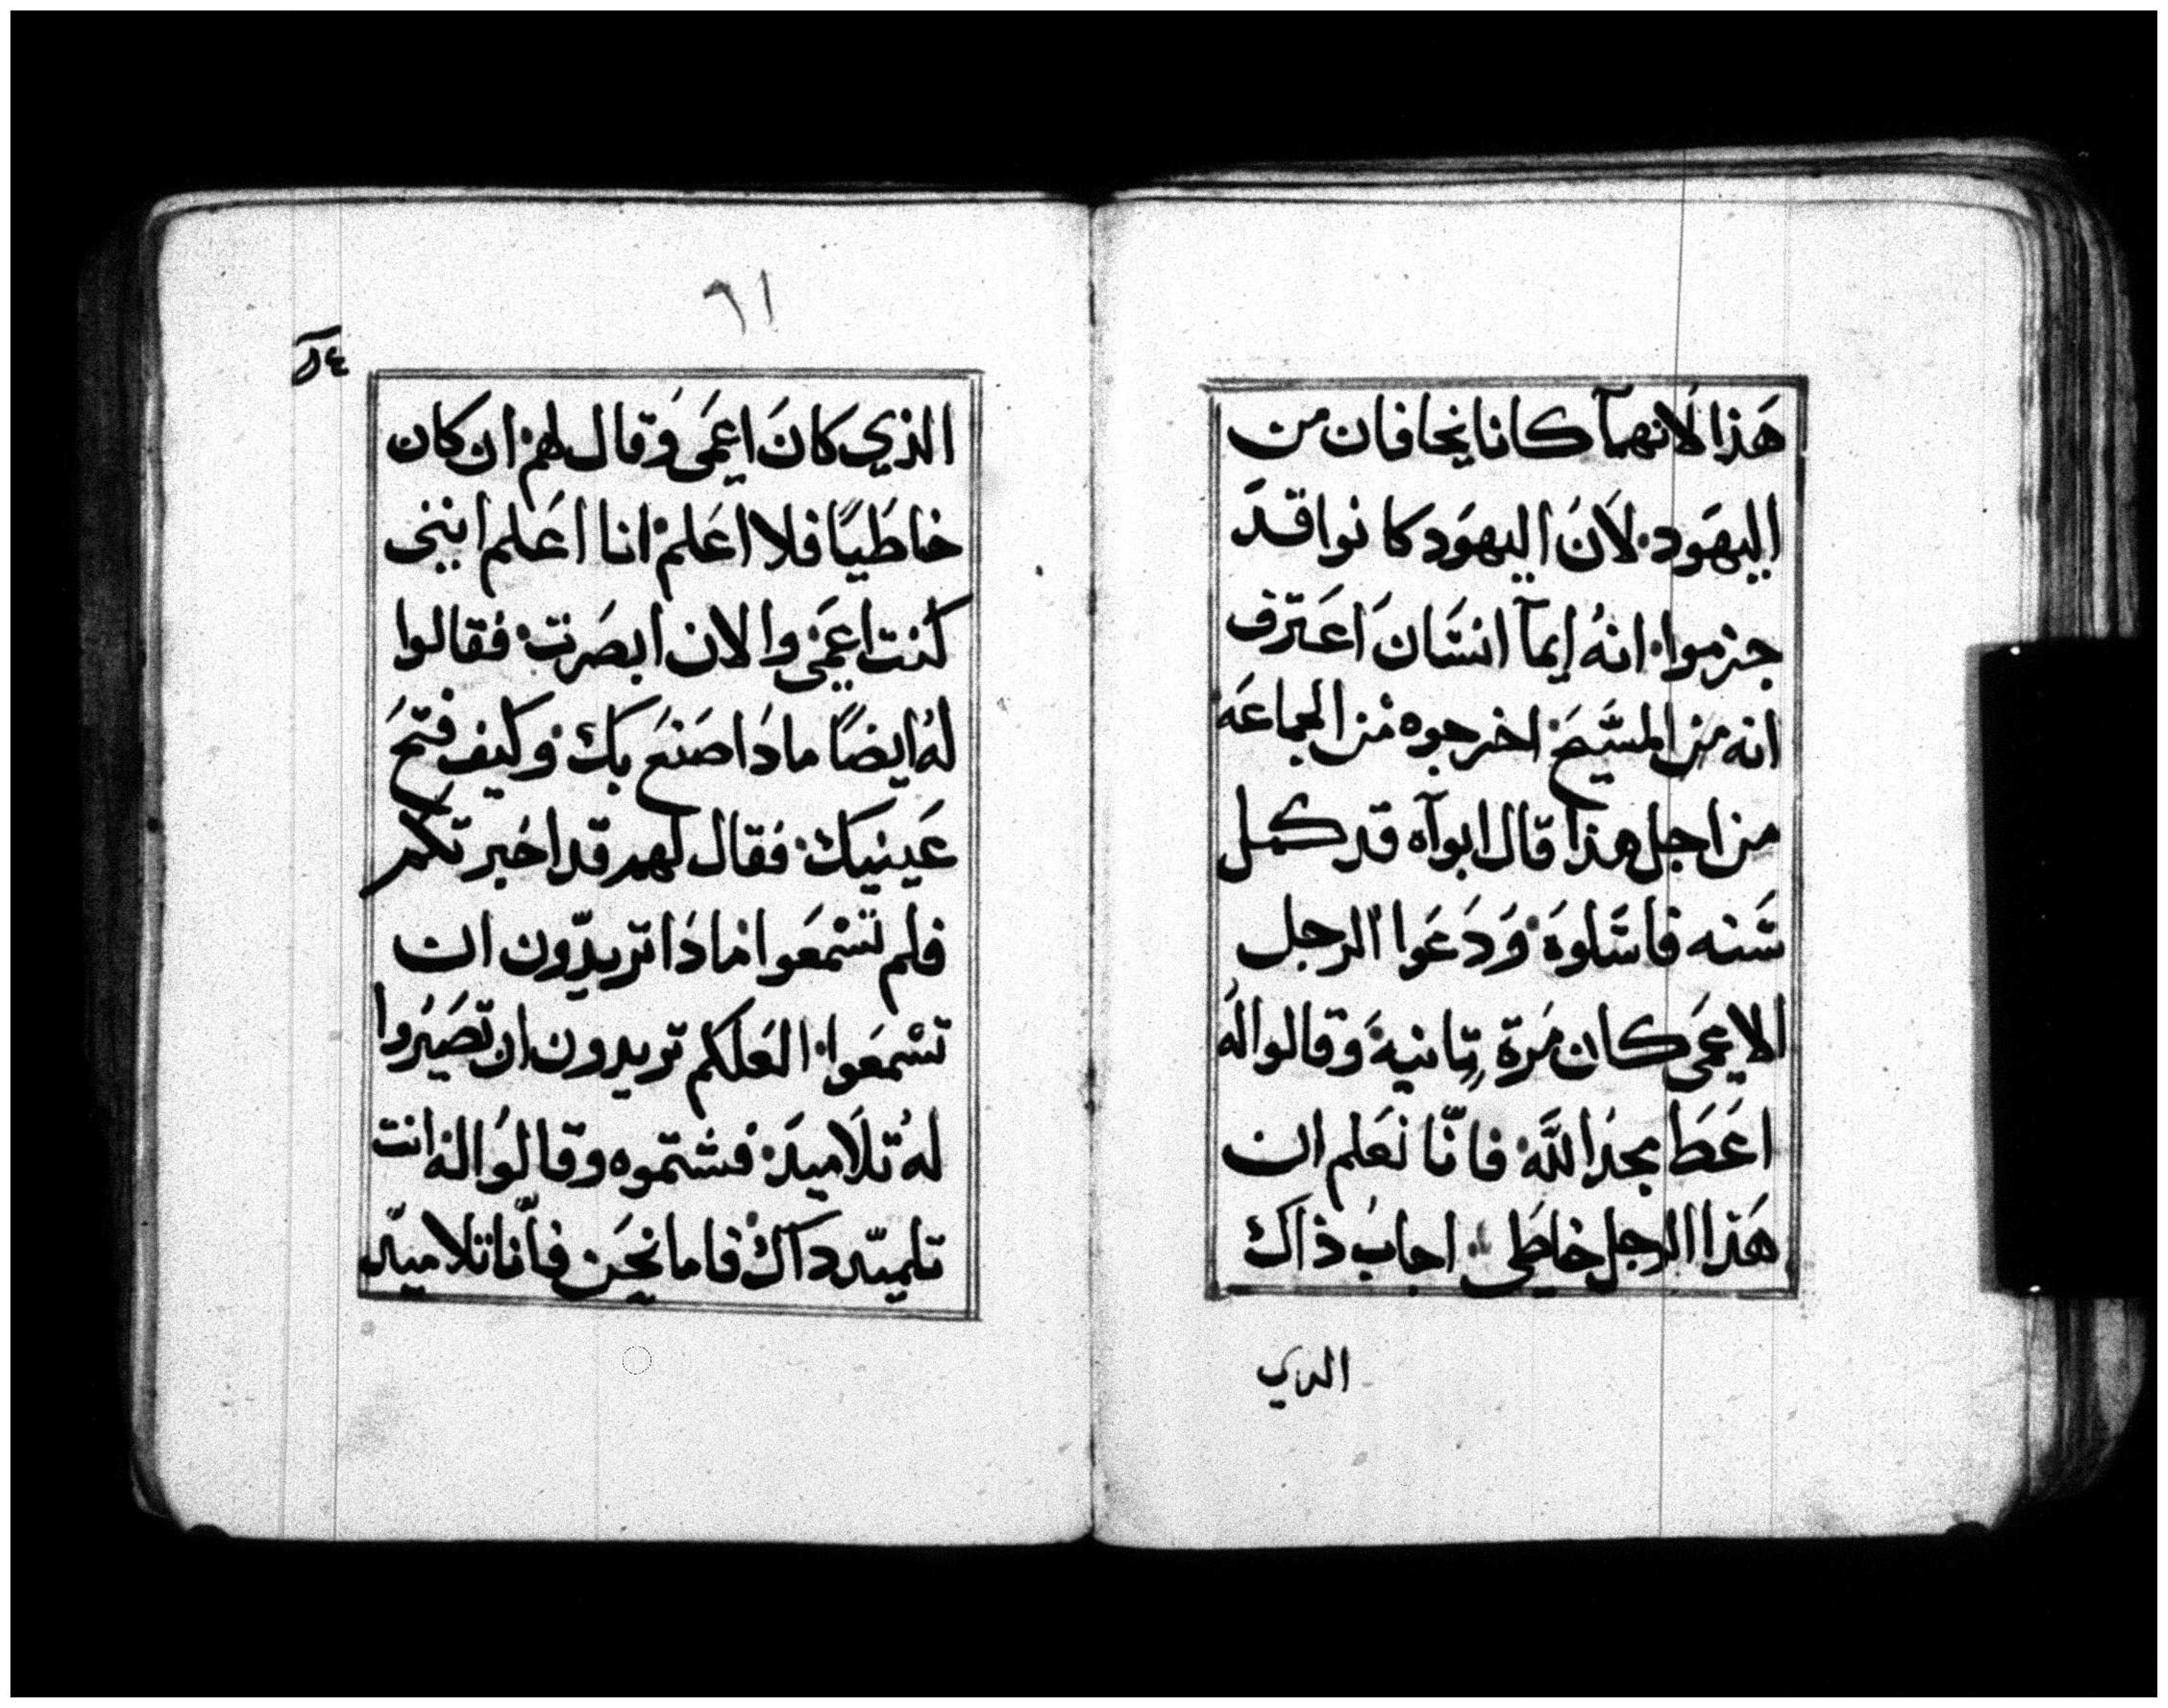 هَذا لانهمآ كانا يخافان من
اليهَود. لاَنَ اليهوَد كانوا قدَ
جزموا. انهُ ايمآ انسَان اَعَترف
انه من المسَيحَ اخرجوه من الجماعَه
من اجل هذا قال ابوآه قد كمل
سَنه فاسَلوَه وَدَعَوا الرجل
الاعمَى كان مَرة تِانية وَقالوا لهُ
اعَطَ مجدَ اللَّه فانّا نَعَلم ان
هَذا الرجل خاطَى. اجابُ ذاك
الدي
٦١
الذي كانَ اعمَى وَقال لهم ان كان
خاطَيًا فلا اعَلم انا اعَلم اننى
كنت اعمَى والان ابصَرت. فقالوا
لهُ ايضًا ما دَا صَنعَ بك وكيف فتحَ
عَينيك. فقال لهم قد اخبرتكم
فلم تسْمعَوا ما دَا تريدّون ان
تسْمعَوا. العَلكم تريدون ان تصَيَروا
لهُ تلاَميدَ. فشتموه وقالوُا لهُ انت
تلميّد داك فاما نحَن فأنّا تلاميّد